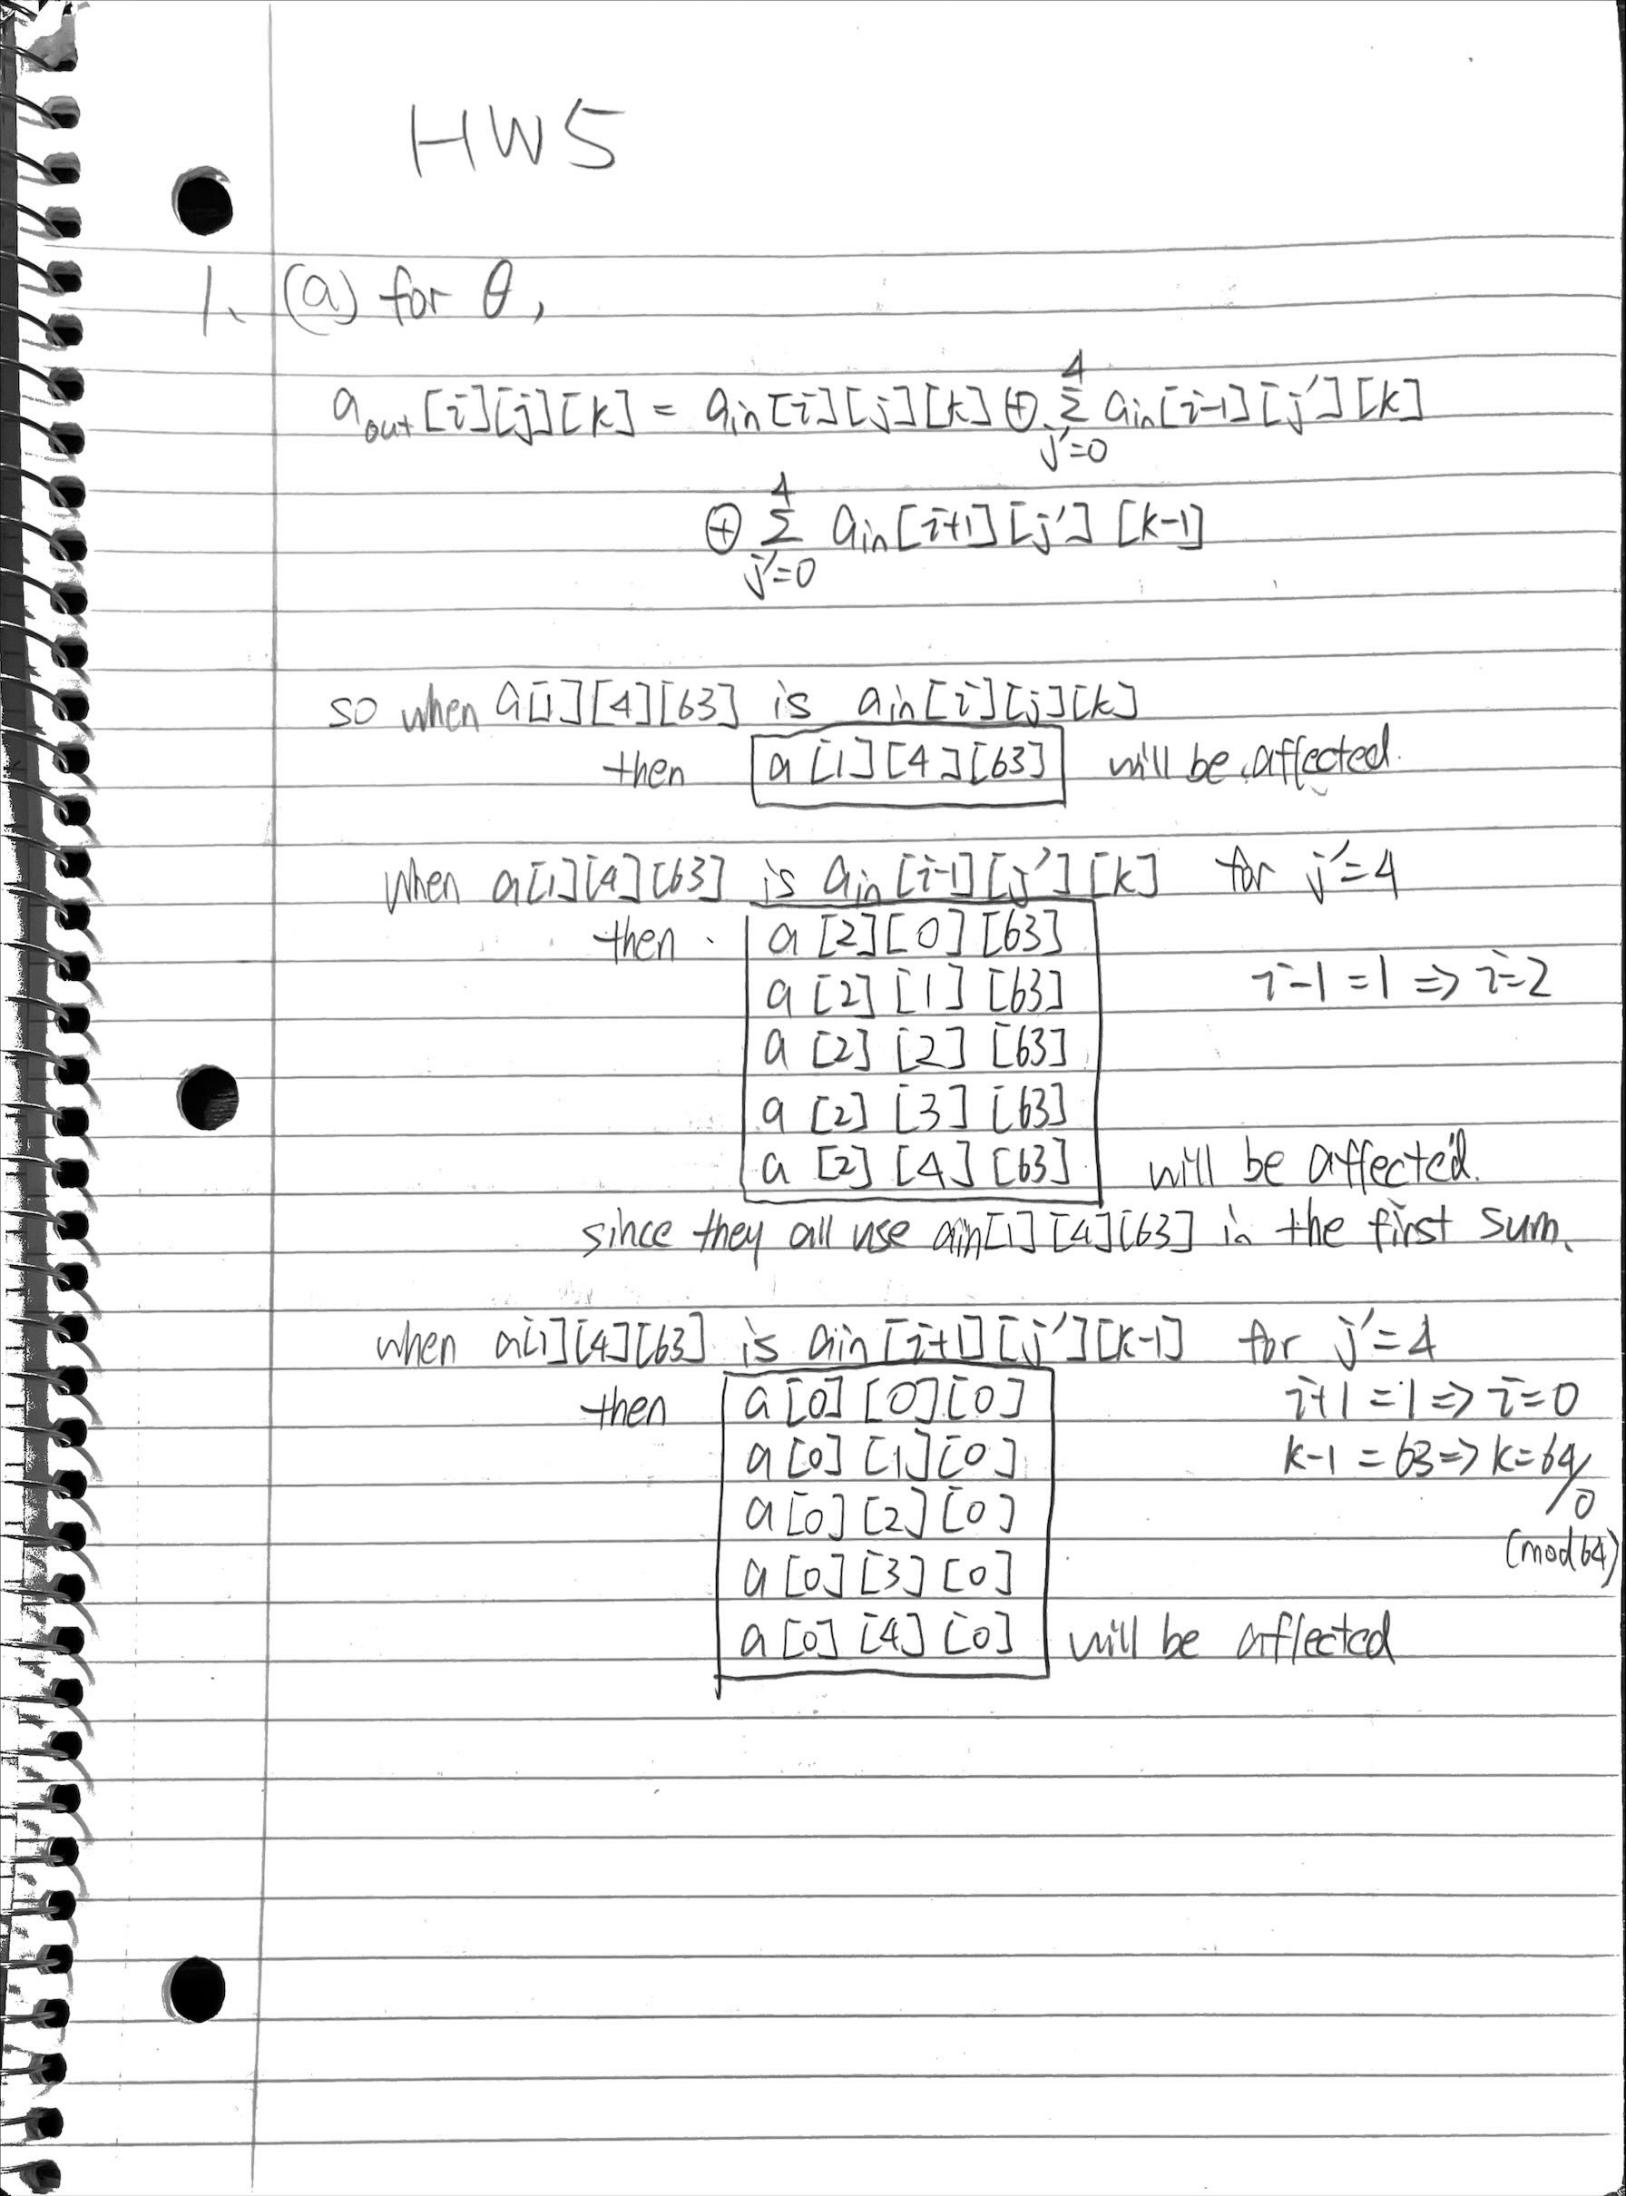 HW5
1. (a) for θ,
a_out[i][j][k] = a_in[i][j][k] ⊕ Σ_{j'=0}^{4} a_in[i-1][j'][k]
⊕ Σ_{j'=0}^{4} a_in[i+1][j'][k-1]
so when a[1][4][63] is a_in[i][j][k]
then a[1][4][63] will be affected.
when a[1][4][63] is a_in[i-1][j'][k] for j'=4
then a[2][0][63]
a[2][1][63] i-1=1 ⇒ i=2
a[2][2][63]
a[2][3][63]
a[2][4][63] will be affected.
since they all use a_in[1][4][63] in the first sum.
when a[1][4][63] is a_in[i+1][j'][k-1] for j'=4
then a[0][0][0] i+1=1 ⇒ i=0
a[0][1][0] k-1=63 ⇒ k=64/0
a[0][2][0] (mod 64)
a[0][3][0]
a[0][4][0] will be affected